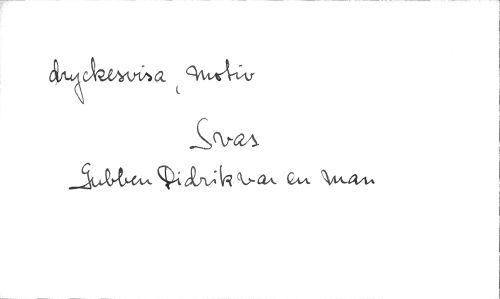 dryckesvisa, motiv
Svas
Gubben Didrik var en man